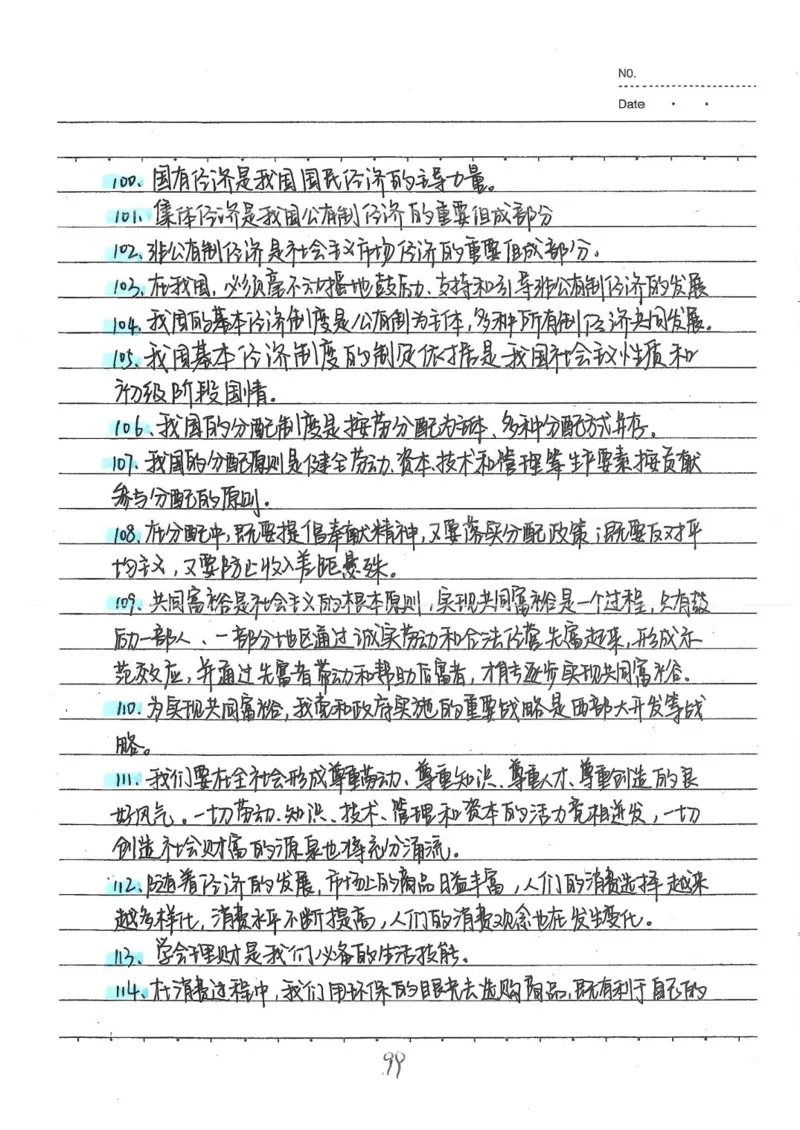 NO.
Date
100、国有经济是我国国民经济的主导力量。
101、集体经济是我国公有制经济的重要组成部分
102、非公有制经济是社会主义市场经济的重要组成部分。
103、在我国，必须毫不动摇地鼓励、支持和引导非公有制经济的发展
104、我国的基本经济制度是公有制为主体，多种所有制经济共同发展。
105、我国基本经济制度的制定依据是我国社会主义性质和
初级阶段国情。
106、我国的分配制度是按劳分配为主体、多种分配方式并存。
107、我国的分配原则是健全劳动、资本、技术和管理等生产要素按贡献
参与分配的原则。
108、在分配中，既要提倡奉献精神，又要落实分配政策；既要反对平
均主义，又要防止收入差距悬殊。
109、共同富裕是社会主义的根本原则，实现共同富裕是一个过程，只有鼓
励一部人、一部分地区通过诚实劳动和合法经营先富起来，形成示
范效应，并通过先富者带动和帮助后富者，才能逐步实现共同富裕。
110、为实现共同富裕，我党和政府实施的重要战略是西部大开发等战
略。
111、我们要在全社会形成尊重劳动、尊重知识、尊重人才、尊重创造的良
好风气。一切劳动、知识、技术、管理和资本的活力竞相迸发，一切
创造社会财富的源泉也将充分涌流。
112、随着经济的发展，市场上的商品日益丰富，人们的消费选择越来
越多样化，消费水平不断提高，人们的消费观念也在发生变化。
113、学会理财是我们必备的生活技能。
114、在消费过程中，我们用环保的眼光去选购商品，既有利于自己的
99